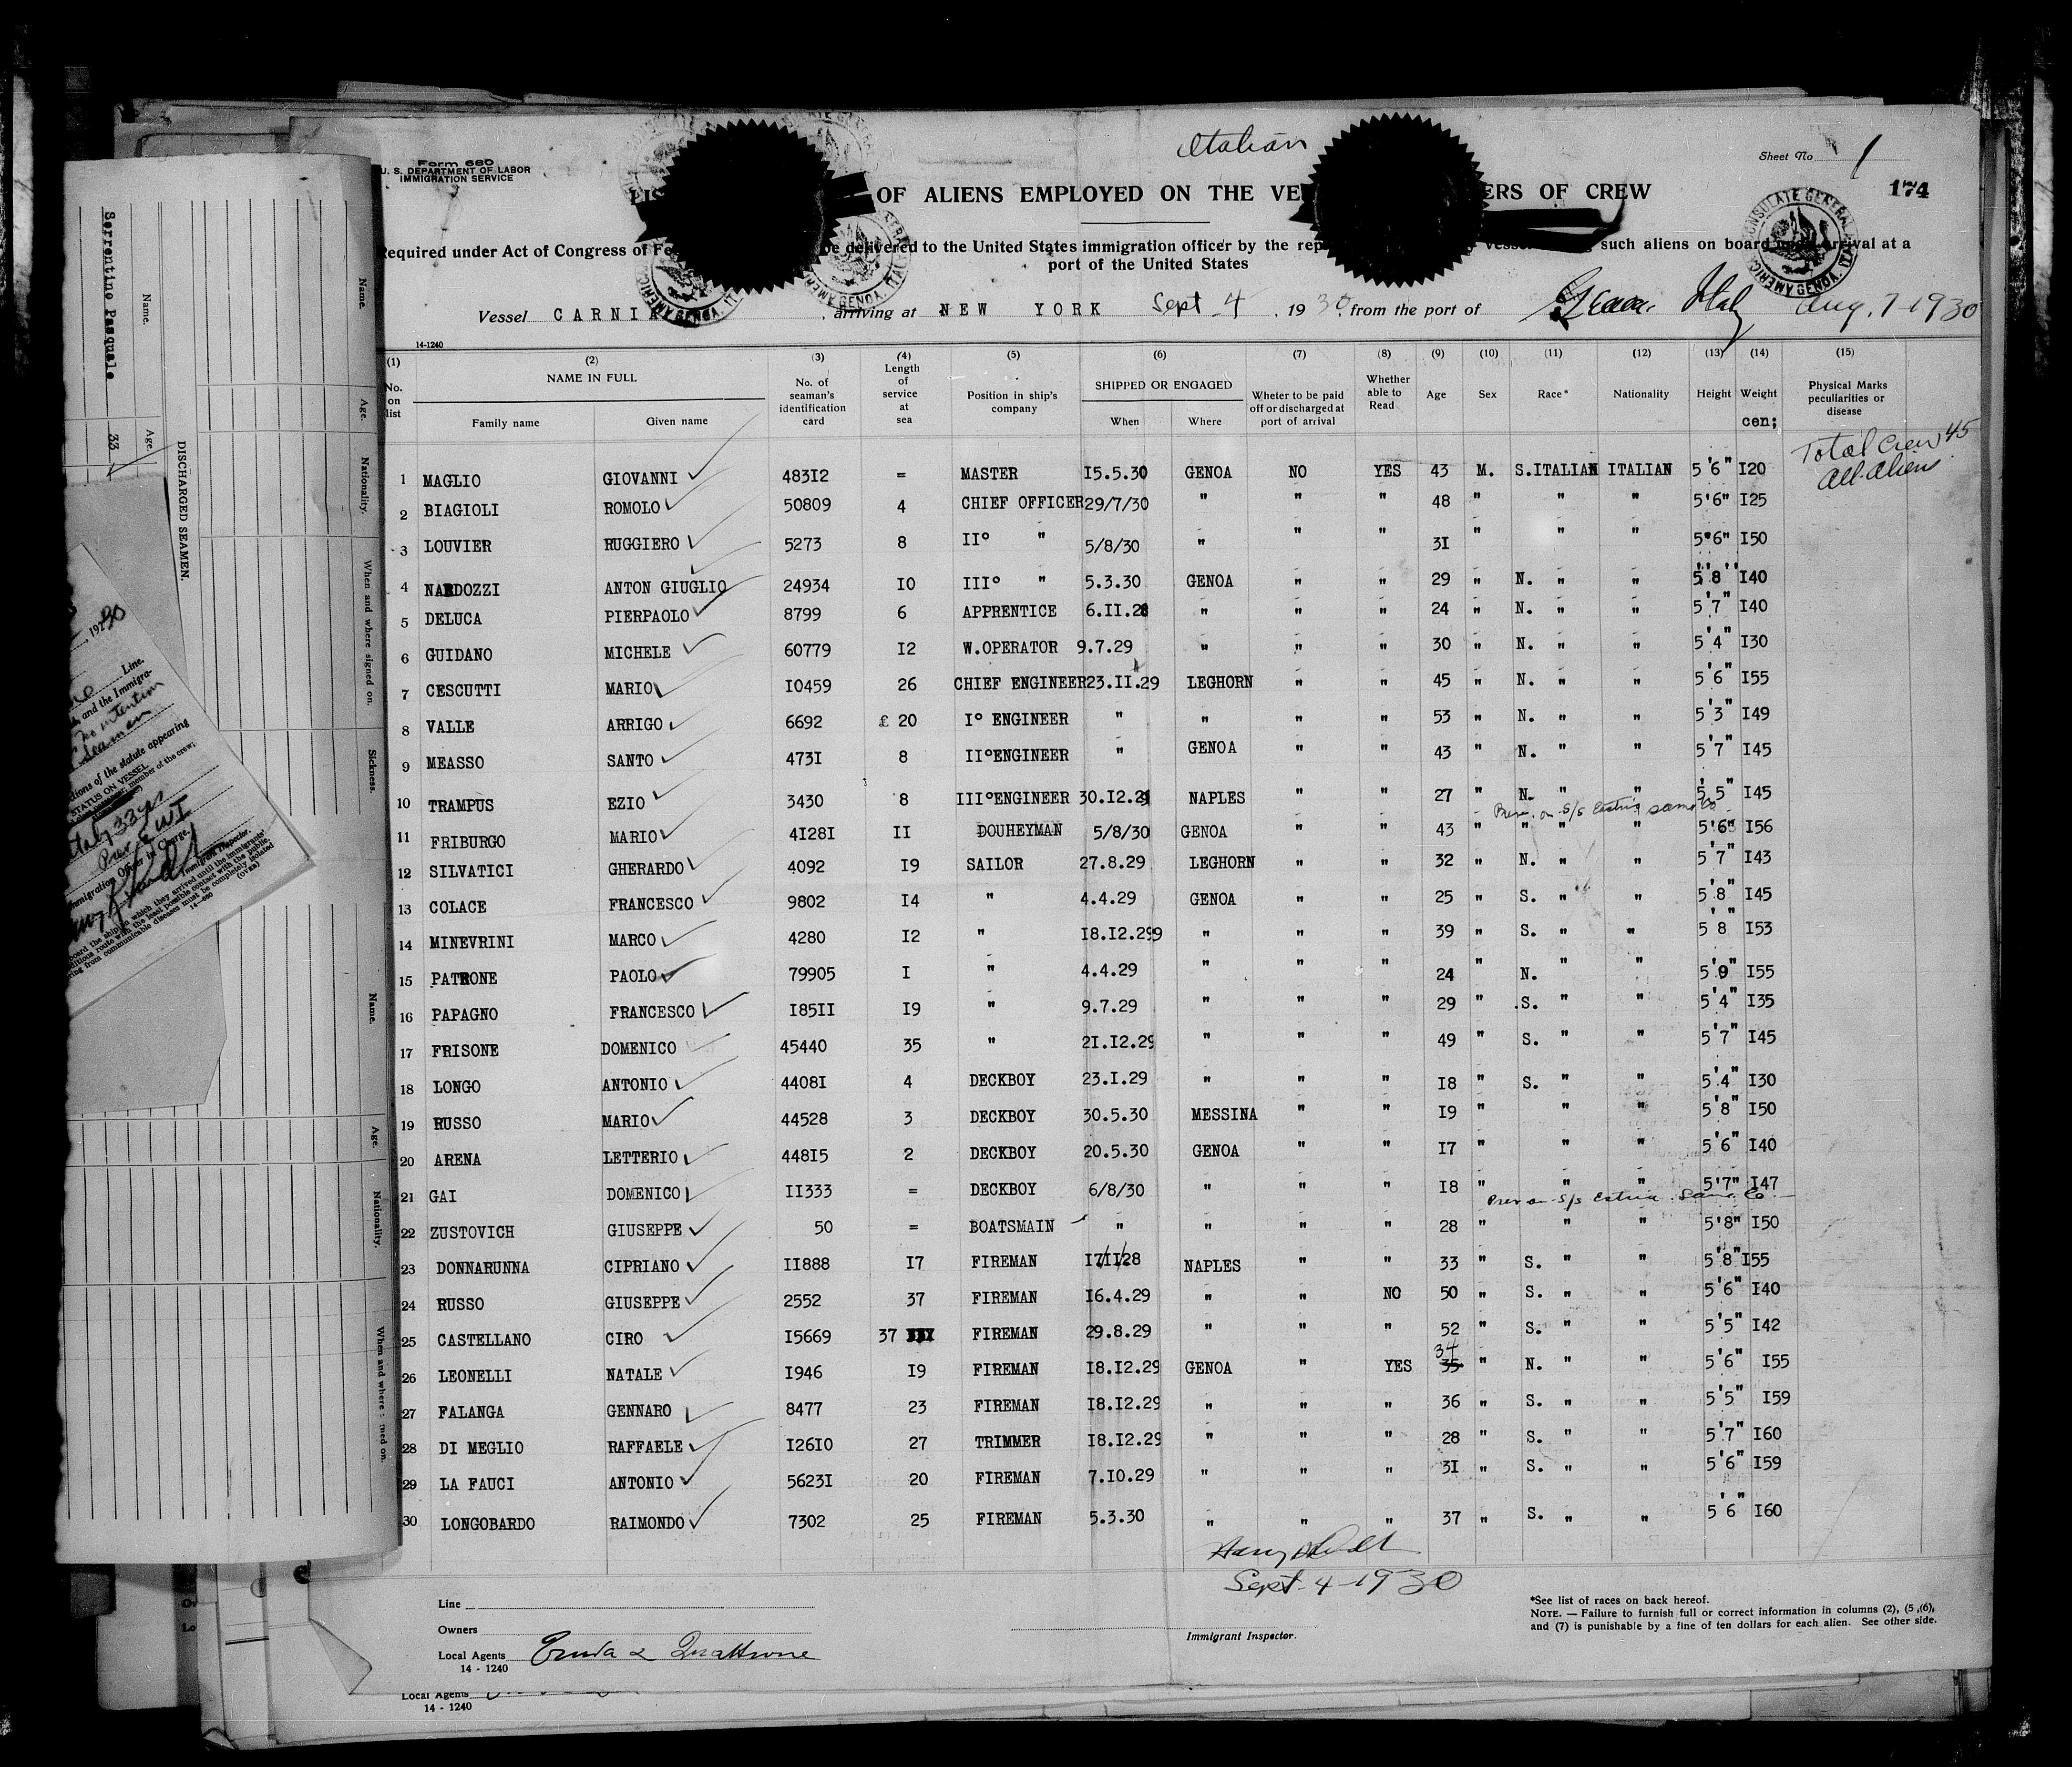 Italian
Form 680
U. S. DEPARTMENT OF LABOR
IMMIGRATION SERVICE
Sheet No 1
174
OF ALIENS EMPLOYED ON THE OF CREW
Required under Act of Congress of be delivered to the United States immigration officer by the such aliens on board arrival at a
port of the United States
Vessel CARNIA, arriving at NEW YORK Sept 4, 1930, from the port of Italy Aug. 7 1930
14-1240
(1) (2) (3) (4) (5) (6) (7) (8) (9) (10) (11) (12) (13) (14) (15)
No. on list NAME IN FULL No. of seaman's identification card Length of service at sea Position in ship's company SHIPPED OR ENGAGED Wheter to be paid off or discharged at port of arrival Whether able to Read Age Sex Race* Nationality Height Weight Physical Marks peculiarities or disease
Family name Given name When Where cen;
Total Crew 45
All Aliens
1 MAGLIO GIOVANNI 483I2 = MASTER I5.5.30 GENOA NO YES 43 M. S.ITALIAN ITALIAN 5'6" I20
2 BIAGIOLI ROMOLO 50809 4 CHIEF OFFICER 29/7/30 " " " 48 " " " 5'6" I25
3 LOUVIER RUGGIERO 5273 8 II° " 5/8/30 " " " 3I " " " 5"6" I50
4 NARDOZZI ANTON GIUGLIO 24934 I0 III° " 5.3.30 GENOA " " 29 " N. " " 5'8" I40
5 DELUCA PIERPAOLO 8799 6 APPRENTICE 6.II.28 " " " 24 " N. " " 5'7" I40
6 GUIDANO MICHELE 60779 I2 W.OPERATOR 9.7.29 " " " 30 " N. " " 5'4" I30
7 CESCUTTI MARIO I0459 26 CHIEF ENGINEER 23.II.29 LEGHORN " " 45 " N. " " 5'6" I55
8 VALLE ARRIGO 6692 £ 20 I° ENGINEER " " " " 53 " N. " " 5'3" I49
9 MEASSO SANTO 473I 8 II°ENGINEER " GENOA " " 43 " N. " " 5'7" I45
10 TRAMPUS EZIO 3430 8 III°ENGINEER 30.I2.29 NAPLES " " 27 " N. " " 5'5" I45
Prev. on S/s Estria same Co
11 FRIBURGO MARIO 4I28I II DOUHEYMAN 5/8/30 GENOA " " 43 " " " " 5'6" I56
12 SILVATICI GHERARDO 4092 I9 SAILOR 27.8.29 LEGHORN " " 32 " N. " " 5'7" I43
13 COLACE FRANCESCO 9802 I4 " 4.4.29 GENOA " " 25 " S. " " 5'8" I45
14 MINEVRINI MARCO 4280 I2 " I8.I2.299 " " " 39 " S. " " 5'8" I53
15 PATRONE PAOLO 79905 I " 4.4.29 " " " 24 " N. " " 5'9" I55
16 PAPAGNO FRANCESCO I85II I9 " 9.7.29 " " " 29 " S. " " 5'4" I35
17 FRISONE DOMENICO 45440 35 " 2I.I2.29 " " " 49 " S. " " 5'7" I45
18 LONGO ANTONIO 4408I 4 DECKBOY 23.I.29 " " " I8 " S. " " 5'4" I30
19 RUSSO MARIO 44528 3 DECKBOY 30.5.30 MESSINA " " I9 " " " 5'8" I50
20 ARENA LETTERIO 448I5 2 DECKBOY 20.5.30 GENOA " " I7 " " " 5'6" I40
21 GAI DOMENICO II333 = DECKBOY 6/8/30 " " " I8 " " " 5'7" I47
Prev on S/s Estria Same Co.
22 ZUSTOVICH GIUSEPPE 50 = BOATSMAIN " " " " 28 " " " 5'8" I50
23 DONNARUNNA CIPRIANO II888 I7 FIREMAN I7/II/28 NAPLES " " 33 " S. " " 5'8" I55
24 RUSSO GIUSEPPE 2552 37 FIREMAN I6.4.29 " " NO 50 " S. " " 5'6" I40
25 CASTELLANO CIRO I5669 37 FIREMAN 29.8.29 " " " 52 " S. " " 5'5" I42
26 LEONELLI NATALE I946 I9 FIREMAN I8.I2.29 GENOA " YES 35 34 " N. " " 5'6" I55
27 FALANGA GENNARO 8477 23 FIREMAN I8.I2.29 " " " 36 " S. " " 5'5" I59
28 DI MEGLIO RAFFAELE I26I0 27 TRIMMER I8.I2.29 " " " 28 " S. " " 5'7" I60
29 LA FAUCI ANTONIO 5623I 20 FIREMAN 7.I0.29 " " " 3I " S. " " 5'6" I59
30 LONGOBARDO RAIMONDO 7302 25 FIREMAN 5.3.30 " " " 37 " S. " " 5'6" I60
Sept 4 1930
Line
Owners
Local Agents
14 - 1240
Immigrant Inspector.
*See list of races on back hereof.
NOTE. — Failure to furnish full or correct information in columns (2), (5,(6),
and (7) is punishable by a fine of ten dollars for each alien. See other side.
Local Agents
14 - 1240
Sorrentino Pasquale
Name.
33
Age.
DISCHARGED SEAMEN.
Name.
Age.
Nationality.
When and where signed on.
Sickness.
Name.
Age.
Nationality.
When and where
Line.
and the Immigra-
no intention
seaman
tions of the statute appearing
STATUS ON VESSEL
member of the crew;
Italy 33 yrs
Immigration Officer in Charge.
Immigrant Inspector.
(OVER)
14—660